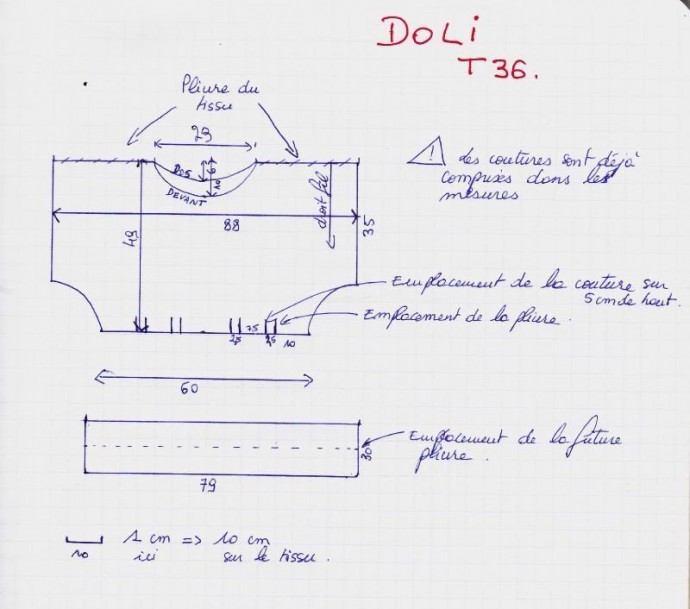 DOLi
T36.
Pliure du
tissu
29
Dos
6
10
DEVANT
droit fil
⚠ Les coutures sont déjà
comprises dans les
mesures
88
35
49
Emplacement de la couture sur
5 cm de haut.
Emplacement de la pliure.
7,5
2,5
2,5
10
60
Emplacement de la future
pliure.
30
79
1 cm => 10 cm
10
ici sur le tissu.